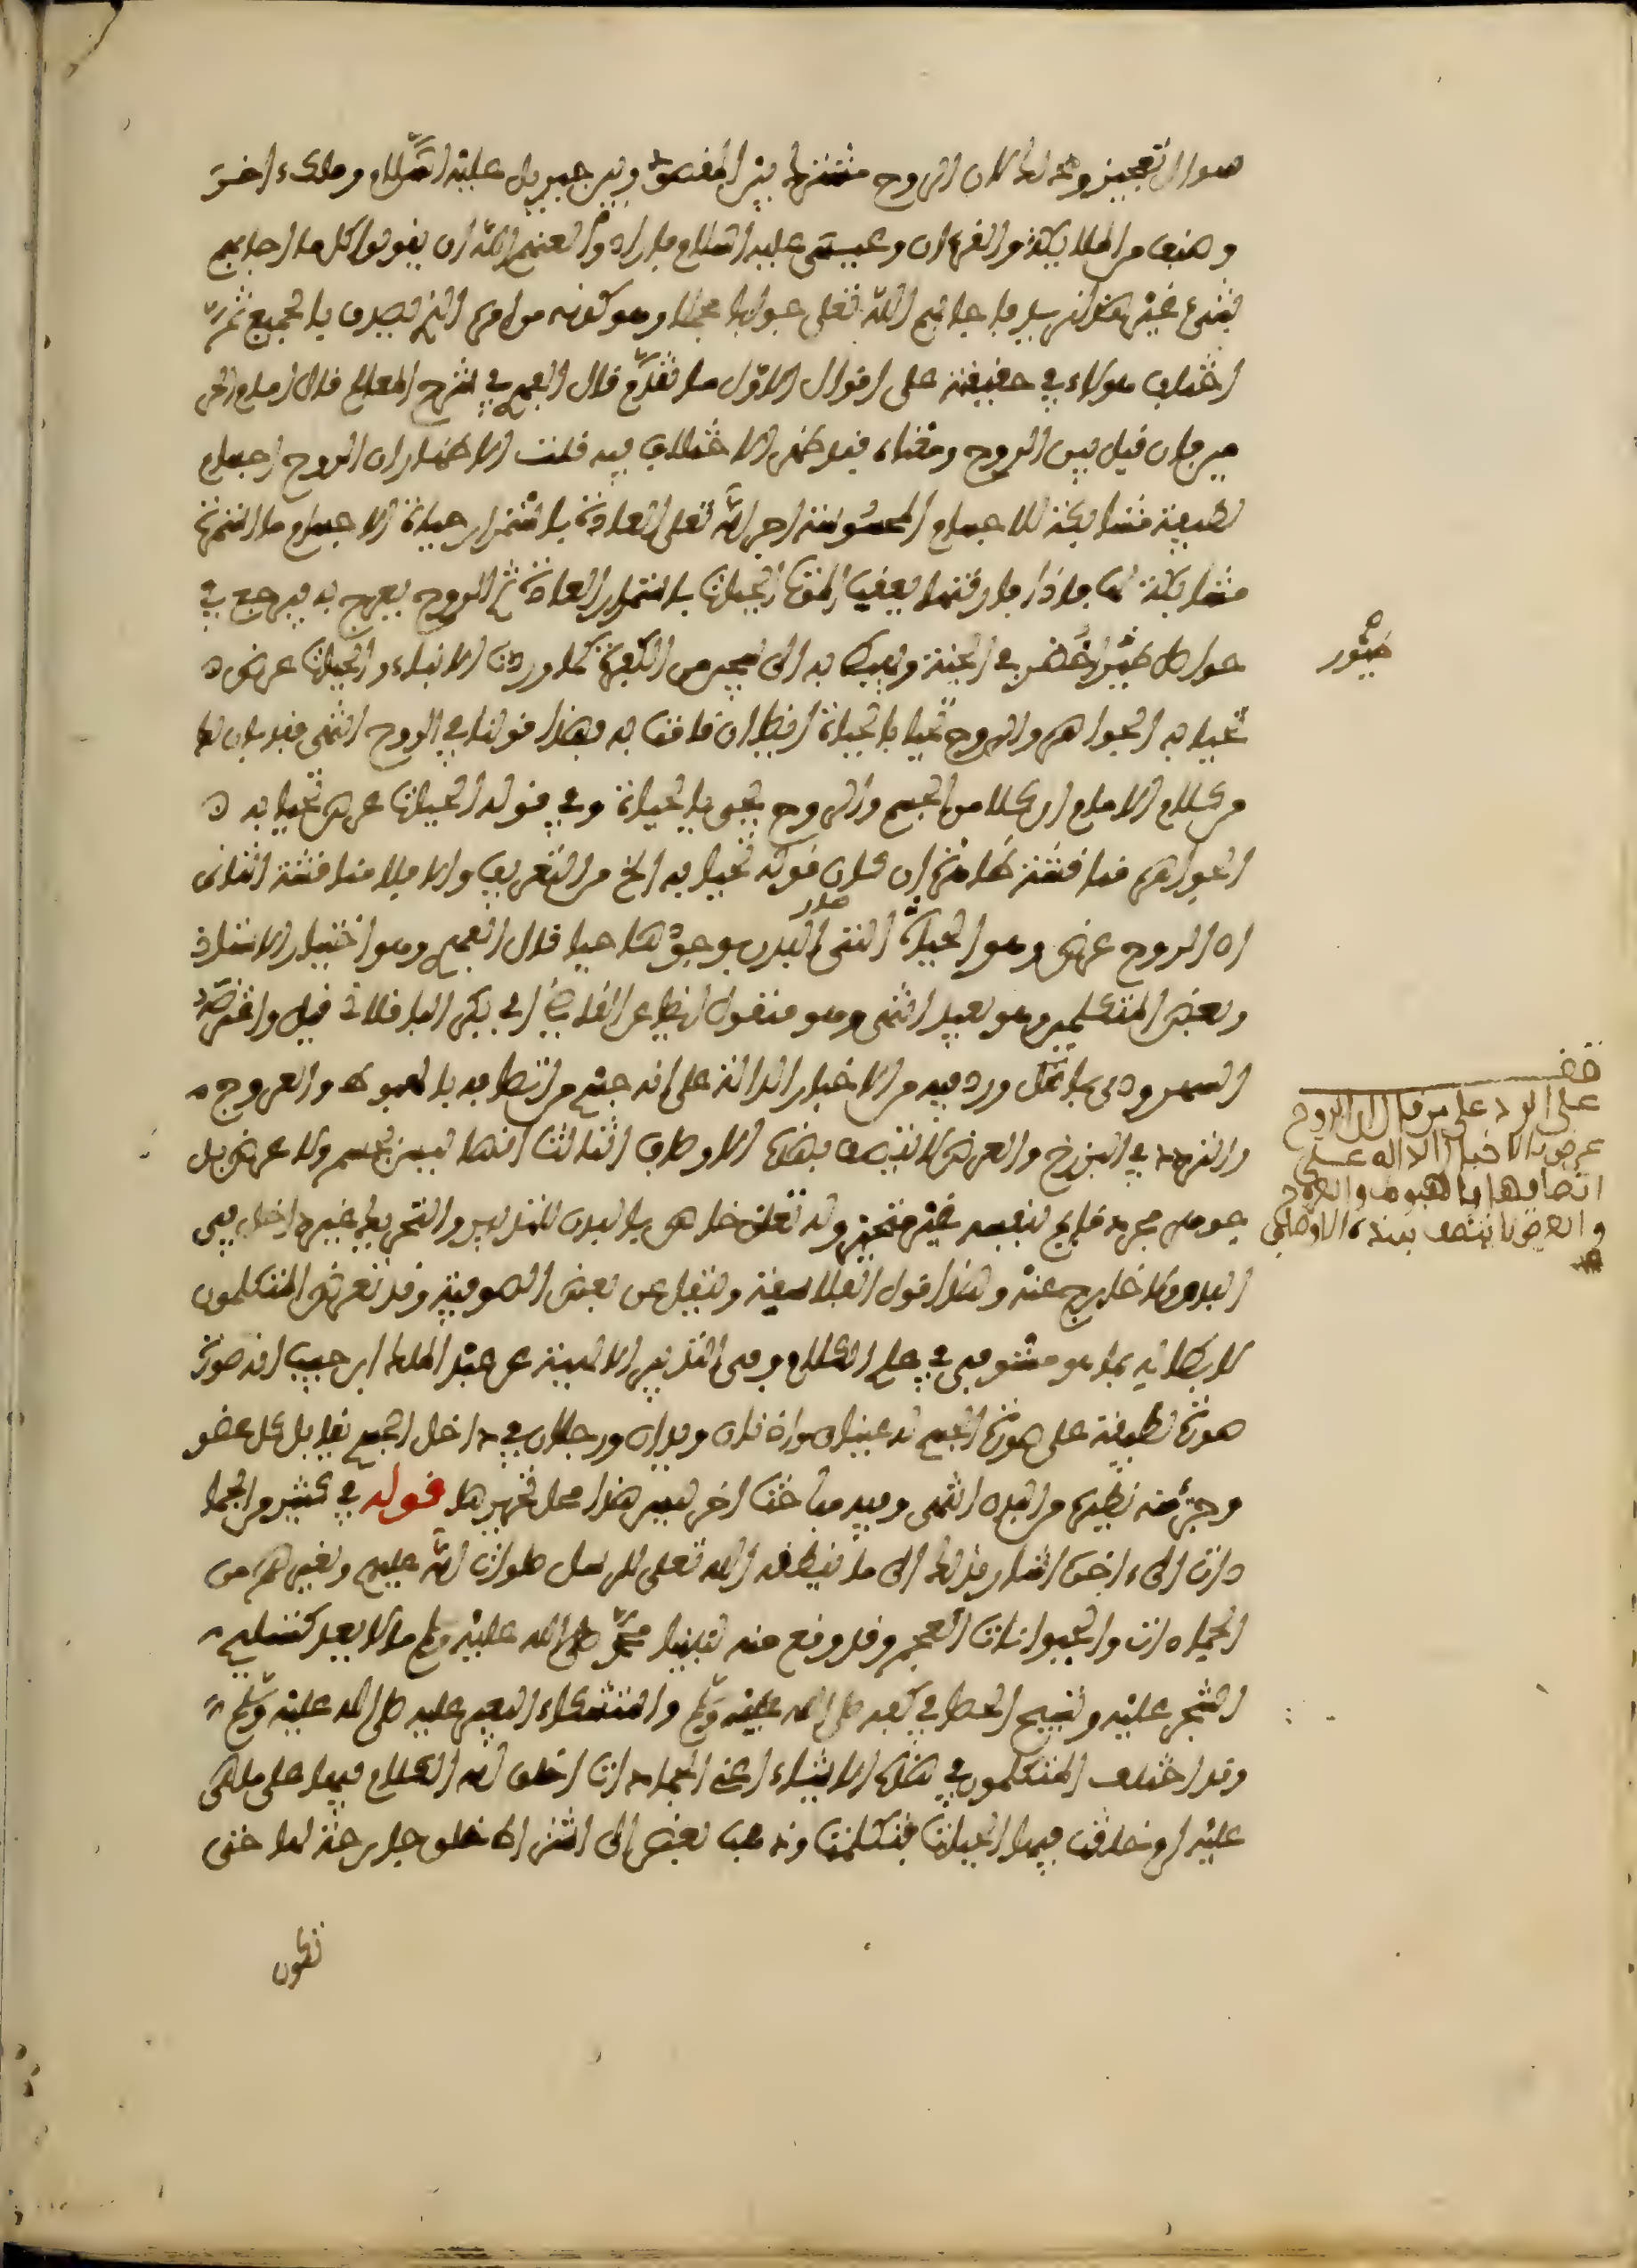 سوال تعجيز وذلك لان الروح مشترك بين المقصود وبين جبريل عليه السلام وملك ءاخر
وصنف من الملايكة والقرءان وعيسى عليه السلام فاراد والعنهم الله ان يقولوا كل ما اجابهم
بشيء غيره هذا نريد فاجابهم الله تعلى جوابا مجملا وهو كونه من امر الذي يصدق بالجميع ثم
اختلف هولاء في حقيقته على اقوال الاول ما تقدم قال الفهم في شرح المعالم قال امام الحر
مين فان قيل بين الروح ومعناه فقد ظهر الاختلاف فيه قلت الاظهر ان الروح اجسام
لطيفة مشابكة للاجسام المحسوسة اجرى الله تعلى العادة باستمرار حياة الاجسام ما استمرت
مشابكة لها فاذا فارقتها يعقب الموت الحياة باستمرار العادة ثم الروح يعرج به ويرجع في
حواصل طير خضر في الجنة ويهبط به الى سجين من الكفرة كما وردت الانباء والحياة عرض
تحيا به الجواهر والروح تحيا بالحياة ايضا ان قامت به فهذا قولنا في الروح انتهى فقد بان لك
من كلام الامام ان كلا من الجسم والروح يحيى بالحياة وفي قوله الحياة عرض تحيا به
الجواهر مناقشة ظاهرة ان كان قوله تحيا به الخ من التعريف والا فلا مناقشة الثاني
ان الروح عرض وهو الحياة التي صار البدن بوجودها حيا قال الفهم وهو اختيار الاستاذ
وبعض المتكلمين وهو بعيد انتهى وهو منقول ايضا عن القاضي ابي بكر الباقلاني قيل واعترضه
السهروردي بما ورد فيه من الاخبار الدالة على انه جسم من اتصافه بالهبوط والعروج
والتردد في البرزخ والعرض لا يتصف بهذه الاوصاف الثالث انها ليس بجسم ولا عرض بل
جوهر مجرد قايم بنفسه غير متحيز وله تعلق خاص بالبدن للتدبير والتحريك غير داخل في
البدن ولا خارج عنه وهذا قول الفلاسفة ونقل عن بعض الصوفية وقد تعرض المتكلمون
لابطاله بما هو مستوفى في علم الكلام وفي التدبير الالهية عن عبد الملك ابن حبيب انه صورة
صورة لطيفة على صورة الجسم له عينان واذنان ويدان ورجلان في داخل الجسم يقابل كل عضو
وجزء منه نظيره من البدن انتهى وفيه مباحث اخر ليس هذا محل تحريرها قوله في كثير من الجما
دات الىء اخره اشار بذلك الى ما ينطقه الله تعلى للرسل صلوات الله عليهم ولغيرهم من
الجمادات والحيوانات العجم وقد وقع منه لنبينا محمد صلى الله عليه وسلم ما لا يعد كتسليم
الشجر عليه وتسبيح الحصا في كفه صلى الله عليه وسلم واشتكاء البعير عليه صلى الله عليه وسلم
وقد اختلف المتكلمون في هذه الاشياء اعني الجمادات اخلق الله الكلام فيها على ما هي
عليه او خلقت فيها الحياة فتكلمت وذهب بعض الى اشتراط خلق جارحة لها حتى
تكون
طيور
قف
على الرد على من قال ان الروح
عرض بالاخبار الدالة على
اتصافها بالهبوط والعروج
والعرض لا يتصف بهذه الاوصاف